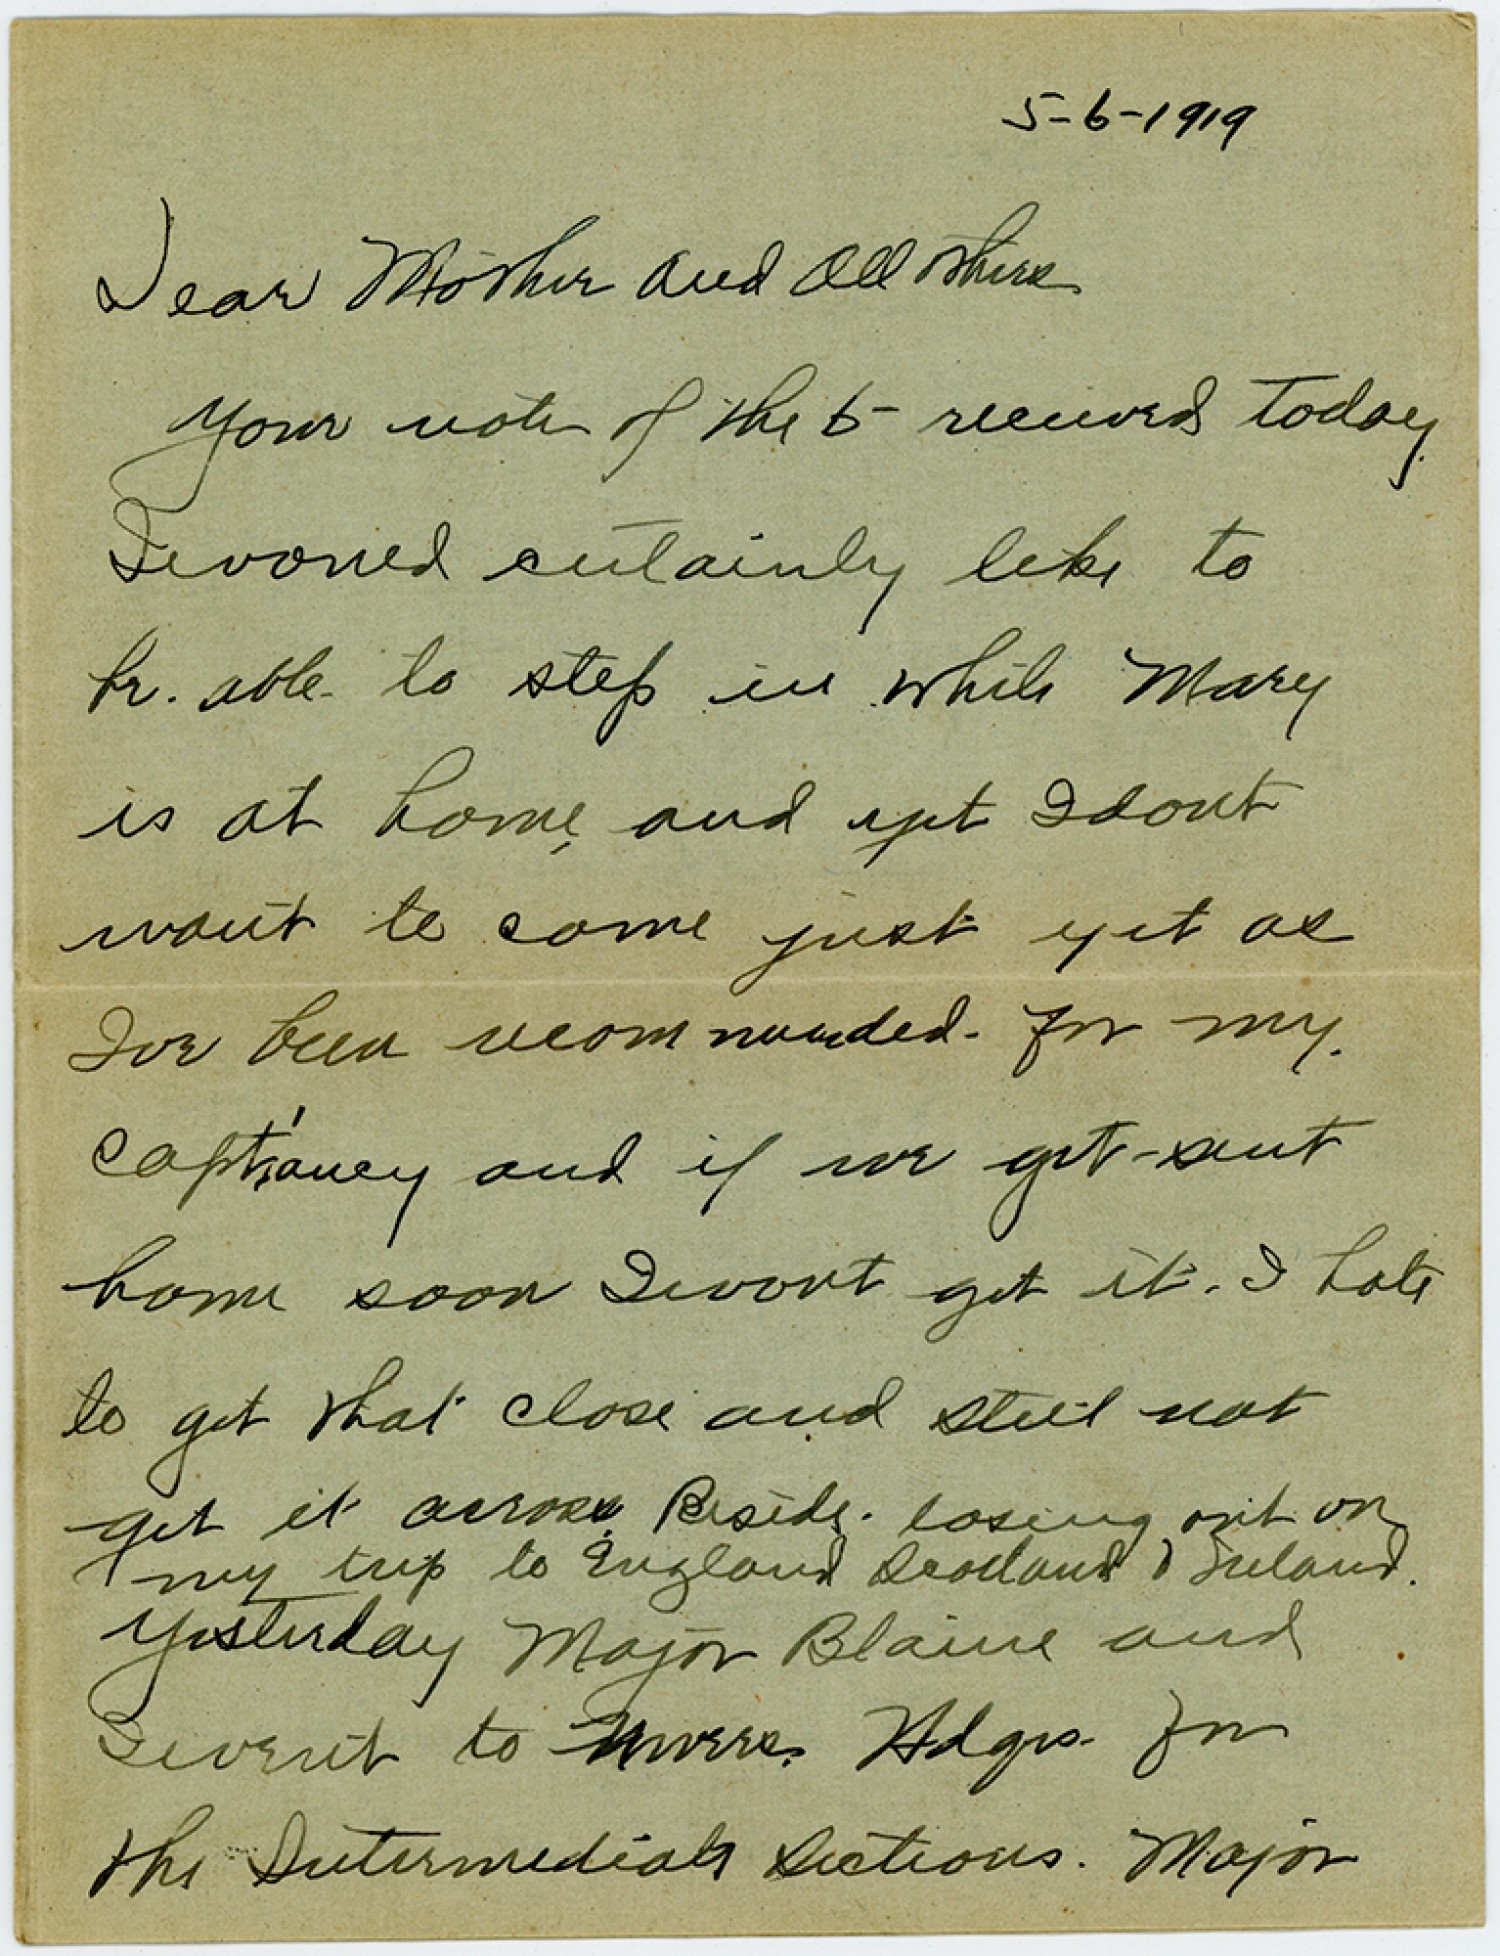 5-6-1919
Dear Mother and All others
Your note of the 6- received today.
I would certainly like to
be. able to step in while Mary
is at home, and yet I dont
want to come just yet as
Ive been recommended for my.
Capt'ancy and if we get sent
home soon I wont get it. I hate
to get that close and still not
get it across. Beside. losing out on
my trip to England Scotland & Ireland.
Yesterday Major Blaine and
I went to Nevers. Hdqrs. for
the Intermediate Sections. Major